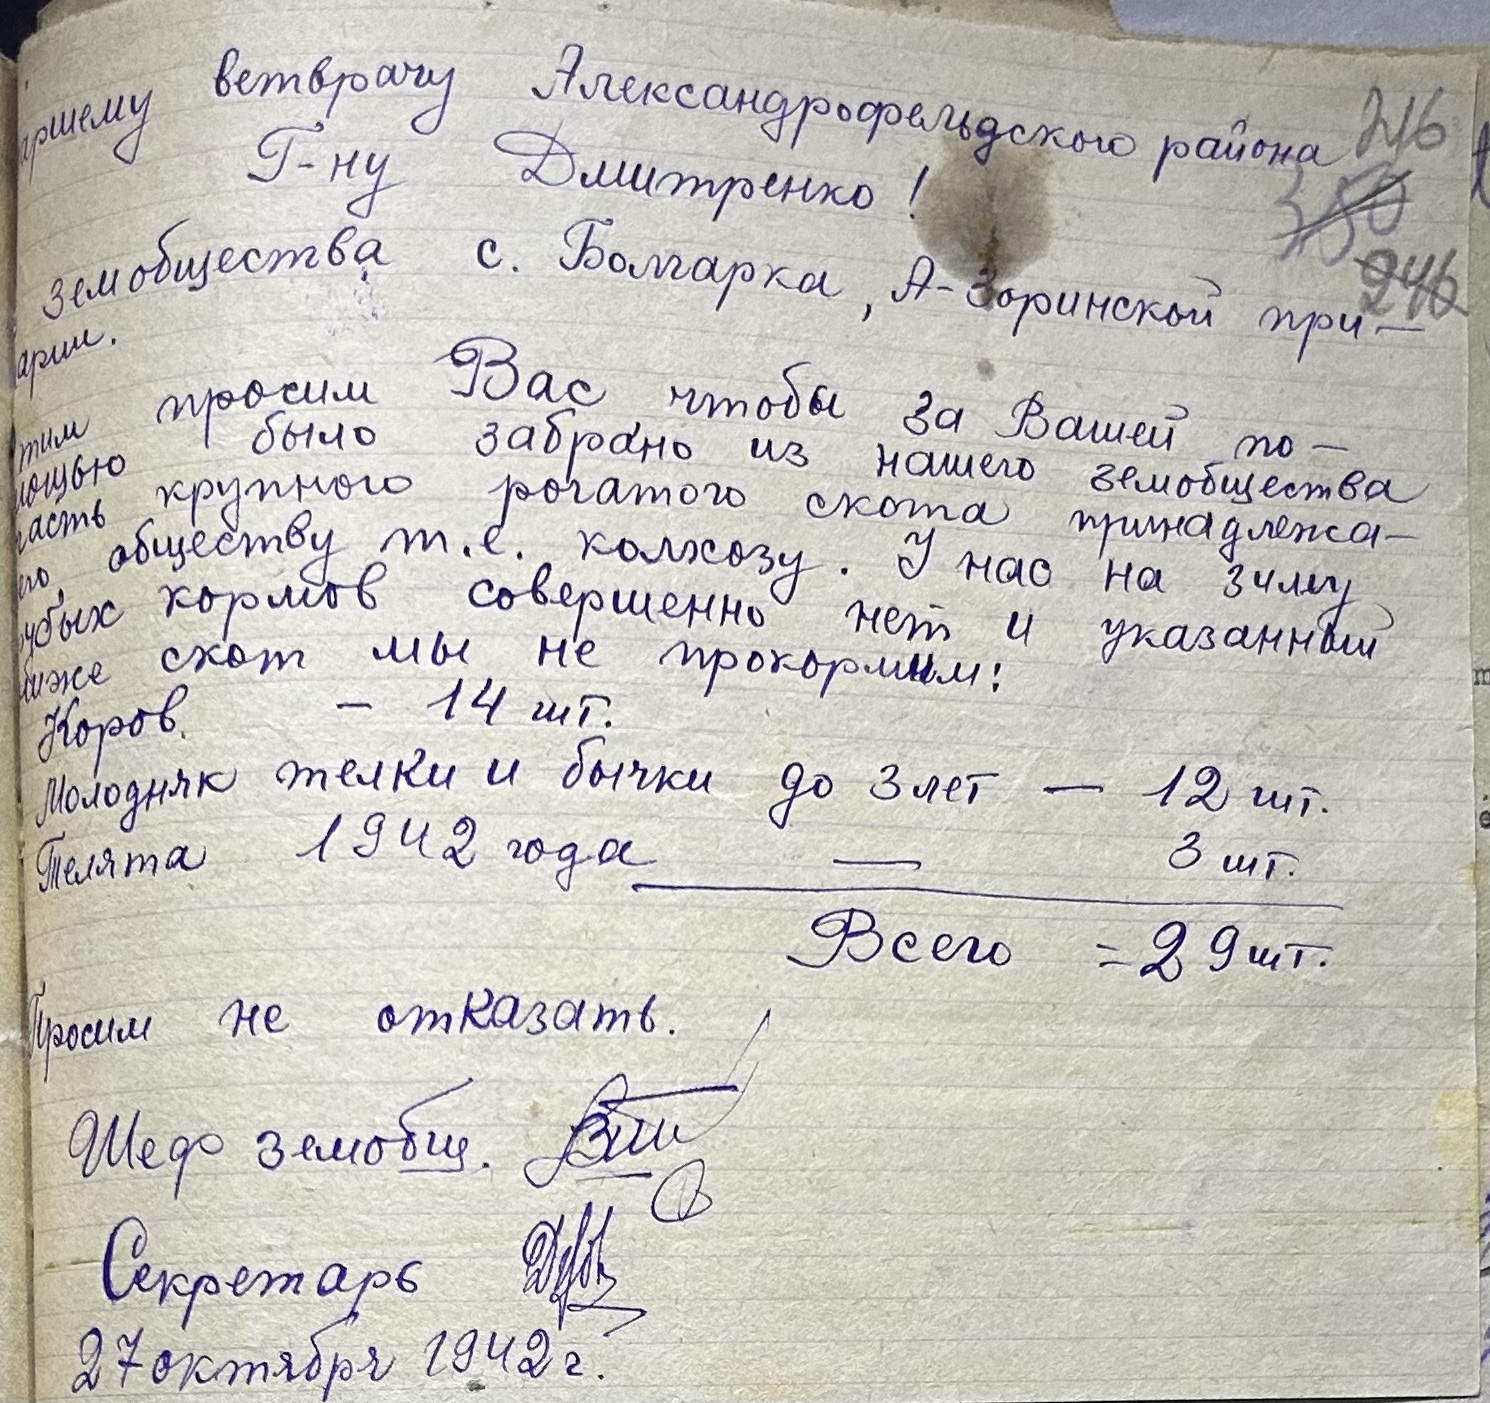 аршему ветврачу Александрофельдского района
Г-ну Дмитренко!
246
350
246
земобщества с. Болгарка, А-Зоринской при-
арии.
тим просим Вас чтобы за Вашей по-
мощью было забрано из нашего земобщества
часть крупного рогатого скота принадлежа-
его обществу т.е. колхозу. У нас на зиму
убых кормов совершенно нет и указанный
ниже скот мы не прокормим:
Коров. - 14 шт.
Молодняк телки и бычки до 3 лет - 12 шт.
Телята 1942 года — 3 шт.
Всего = 29 шт.
Просим не отказать.
Шеф земобщ.
Секретарь
27 октября 1942 г.